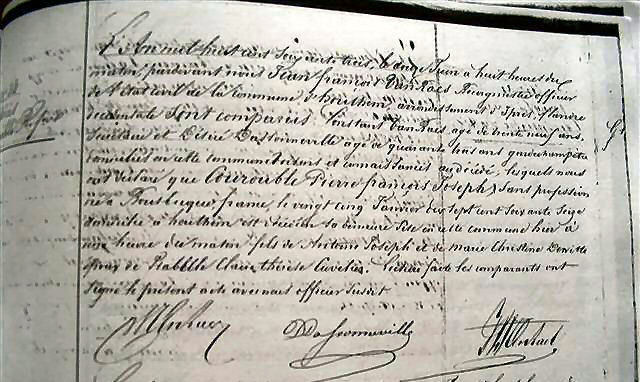 L'An mil huit cent soixante trois, le onze Juin à huit heures du
matin, pardevant nous Jean françois Van Raes Bourgmestre officier
de l'état civil de la Commune d'houthem, arrondissement d'Ipres, flandre
occidentale Sont comparus Constant Van Raes agé de trente neuf ans,
Secrétaire et Désiré Dassonneville agé de quarante trois ans gardechampêtre
domiciliés en cette commune voisins et connaissances du décédé, lesquels nous
ont déclaré que Courouble Pierre françois Joseph, Sans profession
né à Bousbecque france, le vingt cinq Janvier dix sept cent soixante Seize
domicilié à houthem est décédé en sa demeure Sise en cette commune hier à
une heure du matin, fils de Antoine Joseph et de marie Christine Dewitte
époux de Isabelle Claire thérèse Cuvelier. Lecture faite les comparants ont
Signé le présent acte avec nous officier Susdit
DDassonneville